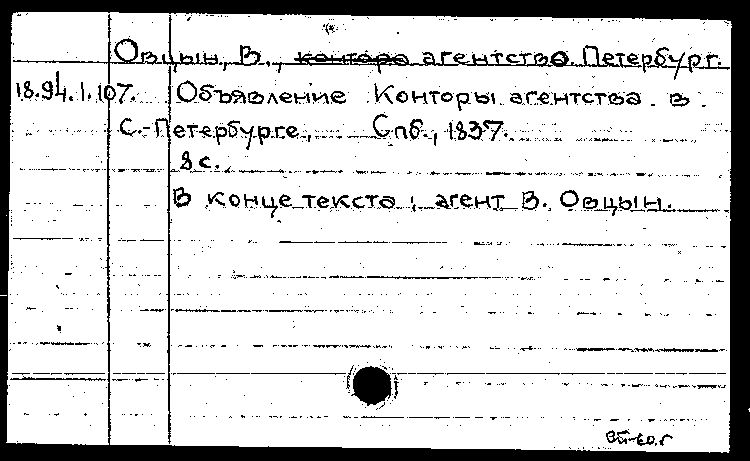 Овцын, В., контора агентство Петербург.
18.94.1.107. Объявление Конторы агентства в
С.-Петербурге, Спб., 1837.
8 с.
В конце текста: агент В. Овцын.